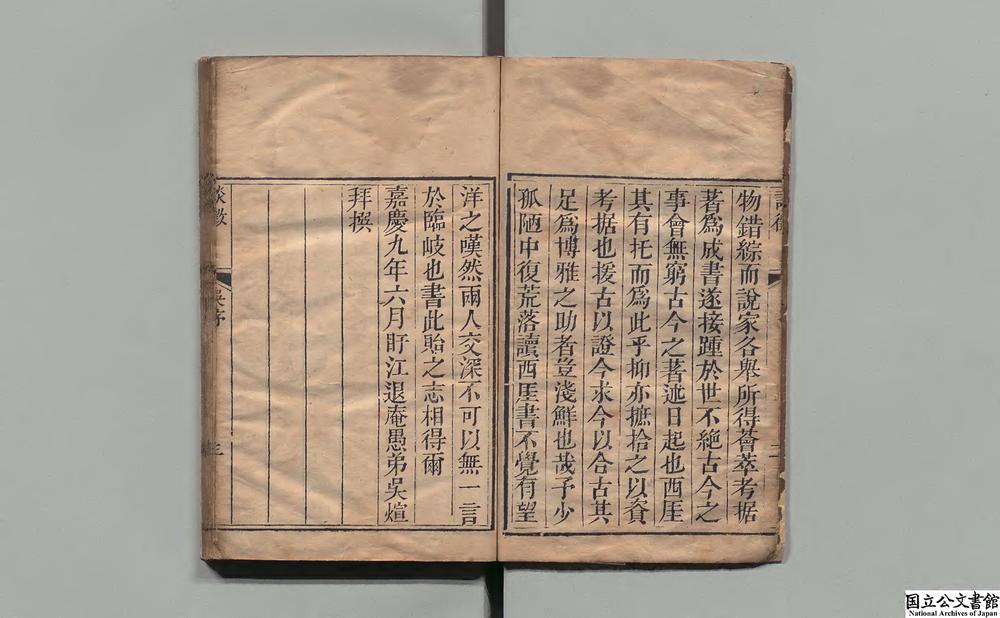 物錯綜而說家各舉所得薈萃考据
著爲成書遂接踵於世不絶古今之
事會無窮古今之著述日起也西厓
其有托而爲此乎抑亦摭拾之以資
考据也援古以證今求今以合古其
足爲博雅之助者豈淺鮮也哉予少
孤陋中復荒落讀西厓書不覺有望
洋之嘆然兩人交深不可以無一言
於臨岐也書此貽之志相得爾
嘉慶九年六月盱江退庵愚弟吳煊
拜撰
談徵
吳序
三
国立公文書館
National Archives of Japan